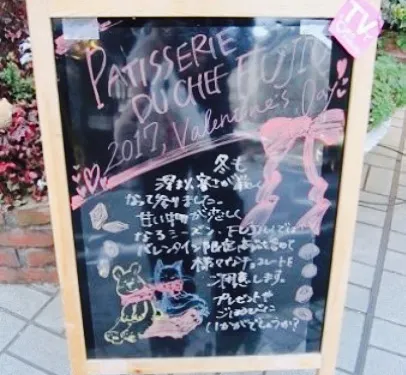 TV
PATISSERIE
DU CHEF FUJIU
2017, Valentine's Day
冬も
深まり寒さが厳しく
なって参りました。
甘い物が恋しく
なるシーズン・FUJIUでは
バレンタイン限定商品を含めて
様々なチョコレートを
ご用意します。
プレゼントや
ごほうびに
いかがでしょうか?